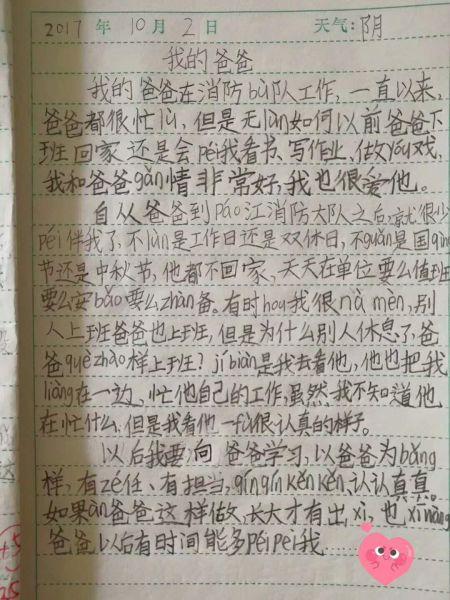 2017 年 10 月 2 日 天气:阴
我的爸爸
我的爸爸在消防bù队工作,一直以来,
爸爸都很忙lù,但是无lùn如何以前爸爸下
班回家还是会péi我看书、写作业、做yóu戏,
我和爸爸gǎn情非常好,我也很爱他。
自从爸爸到páo江消防大队之后,就很少
péi伴我了,不lùn是工作日还是双休日,不guǎn是国qìng
节还是中秋节,他都不回家,天天在单位要么值班
要么安bǎo要么zhàn备。有时hou我很nà mèn,别
人上班爸爸也上班,但是为什么别人休息了,爸
爸què zhào样上班?jí biàn是我去看他,他也把我
liàng在一边,忙他自己的工作,虽然我不知道他
在忙什么,但是我看他一fù很认真的样子。
以后我要向爸爸学习,以爸爸为bǎng
样,有zé任、有担当,qín qín kěn kěn、认认真真。
如果àn爸爸这样做,长大才有出xi,也xī nàng
爸爸以后有时间能多péi pei我
+5
25